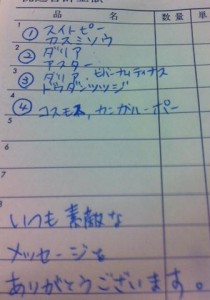 品名 数量 単
1 ① スイトピー
カスミソウ
2 ② ダリア
アスター
3 ③ ダリア、ビバーナムティナス
ドウダンツツジ
4 ④ コスモス、カンガルーポー
5
6
7
8
いつも素敵な
メッセージを
ありがとうございます。